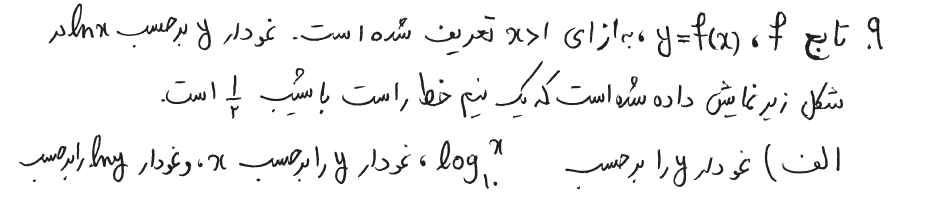 ۹. تابع f، y=f(x)، به ازای x>1 تعریف شده است. نمودار y برحسب lnx در
شکل زیر نمایش داده شده است که یک نیم خط راست با شیب ۱/۲ است.
الف) نمودار y را برحسب log₁₀ˣ، نمودار y را برحسب x، و نمودار lny را برحسب